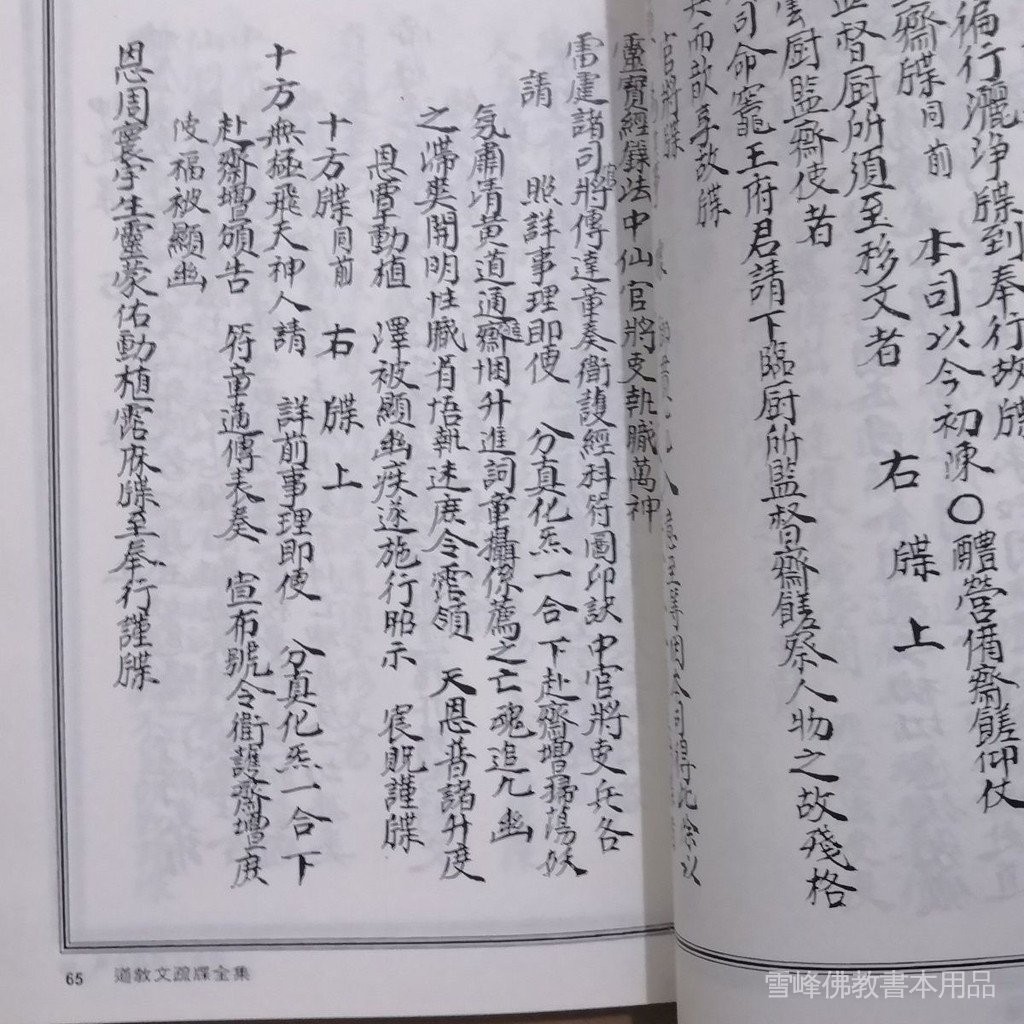 徧行灑淨牒到奉行故牒
齋牒同前 本司以今初陳○醮營備齋饈仰仗
監督厨所須至移文者 右牒上
雲厨監齋使者
司命竈王府君請下臨厨所監督齋饈祭人物之故殘格
而歆享故牒
官將牒
靈寶經籙法中仙官將吏執職萬神
雷霆諸司將傳達童奏衛護經科符圖印訣中官將吏兵各
請 照詳事理即便 分真化炁一合下赴齋壇掃蕩妖
氛肅清黃道通齋悃升進詞童攝係薦之亡魂追九幽
之滯爽開明性職省悟執迷庶令霑領 天恩普諸升度
恩覃動植 澤被顯幽疾遂施行昭示 宸貺謹牒
十方牒同前 右牒上
十方無極飛天神人請 詳前事理即便 分真化炁一合下
赴齋壇頒告 符童適傳表奏 宣布號令衛護齋壇庶
使福被顯幽
恩周寰宇生靈蒙佑動植霑庥牒至奉行謹牒
65 道教文疏牒全集
雪峰佛教書本用品